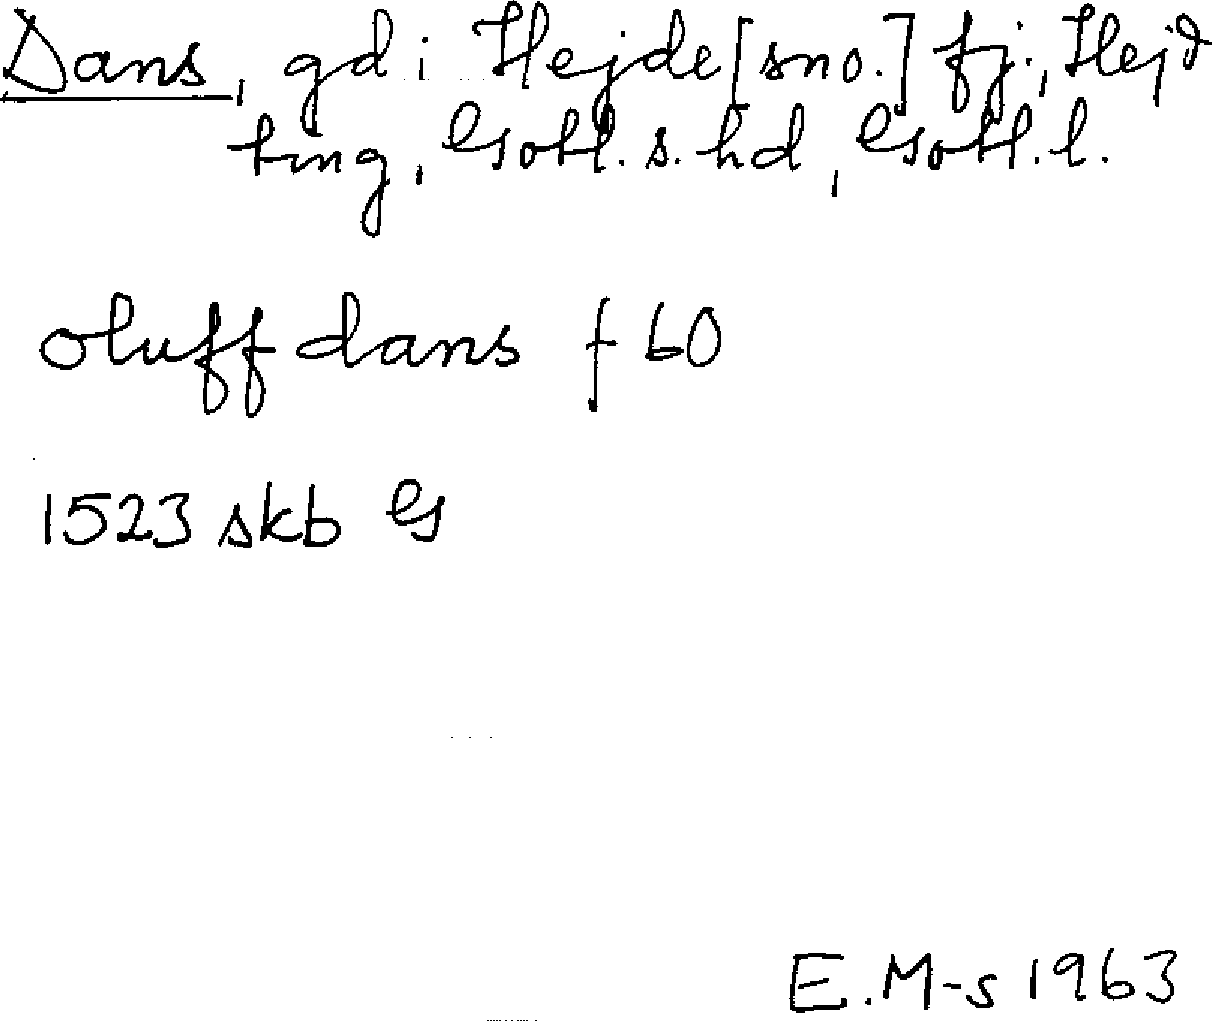 Dans, gd i Hejde [sno.] fj., Hejd
ting, Gotl. s. hd, Gotl. l.
oluff dans f 60
1523 skb G
E.M-s 1963